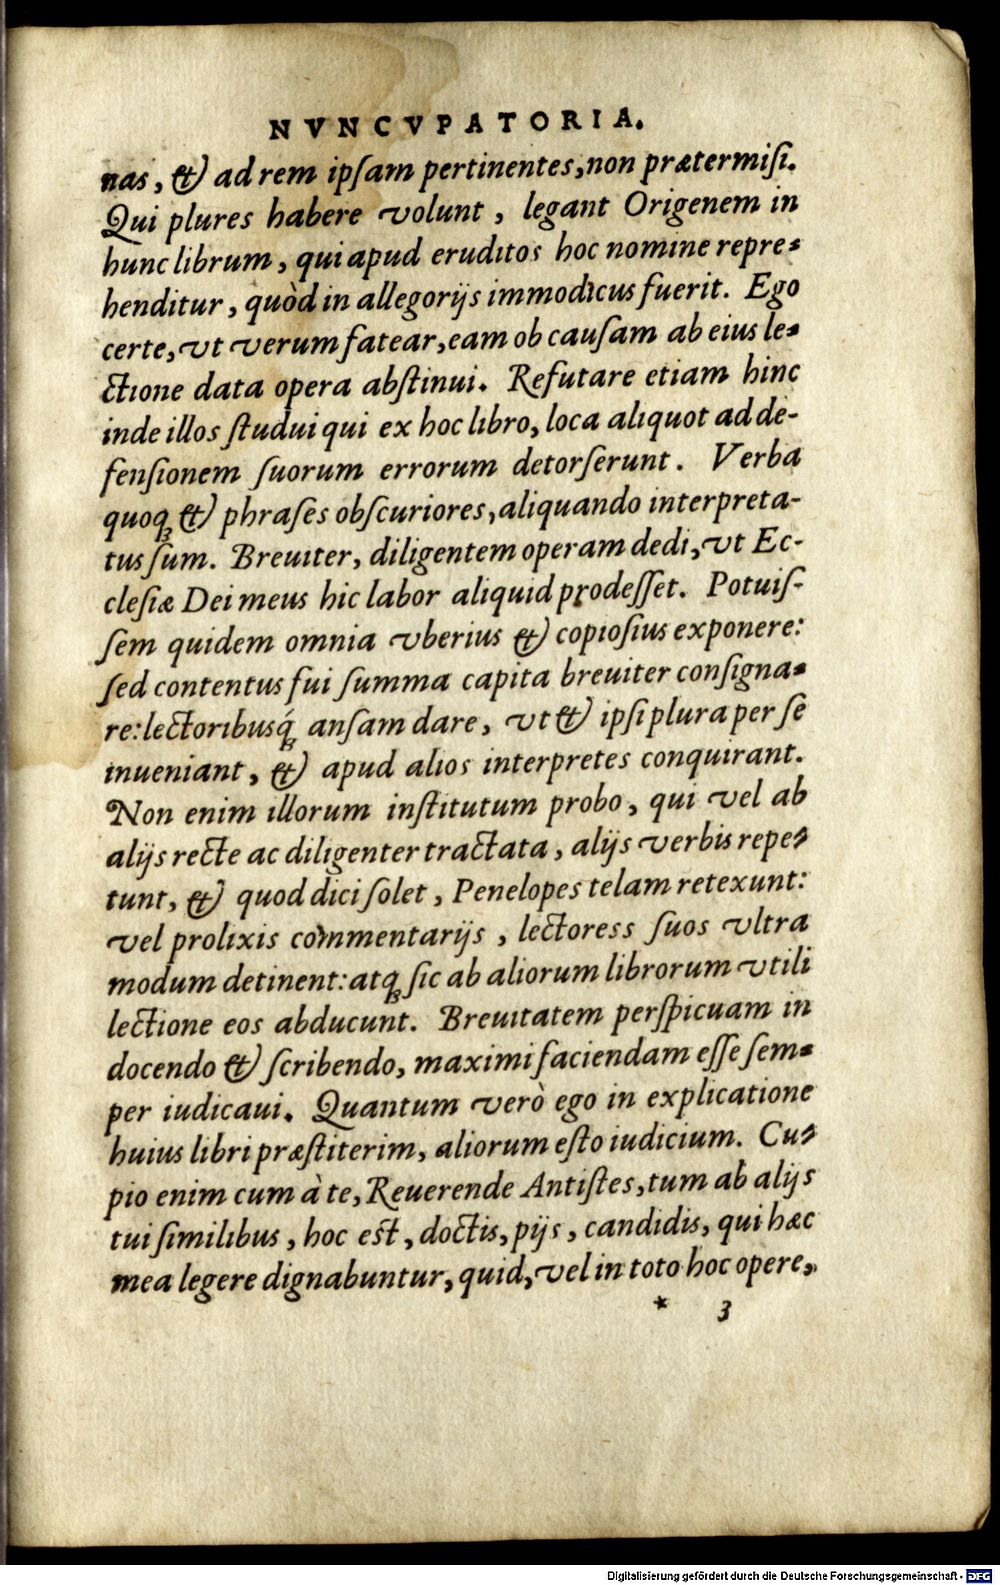 NVNCVPATORIA.
nas, & ad rem ipſam pertinentes, non prætermiſi.
Qui plures habere volunt, legant Origenem in
hunc librum, qui apud eruditos hoc nomine repre-
henditur, quòd in allegorijs immodicus fuerit. Ego
certe, vt verum fatear, eam ob cauſam ab eius le-
ctione data opera abſtinui. Refutare etiam hinc
inde illos ſtudui qui ex hoc libro, loca aliquot ad de-
fenſionem ſuorum errorum detorſerunt. Verba
quoqꝫ & phraſes obſcuriores, aliquando interpreta-
tus ſum. Breuiter, diligentem operam dedi, vt Ec-
cleſiæ Dei meus hic labor aliquid prodeſſet. Potuiſ-
ſem quidem omnia vberius & copioſius exponere:
ſed contentus fui ſumma capita breuiter conſigna-
re: lectoribusq́ꝫ anſam dare, vt & ipſi plura per ſe
inueniant, & apud alios interpretes conquirant.
Non enim illorum inſtitutum probo, qui vel ab
alijs recte ac diligenter tractata, alijs verbis repe-
tunt, & quod dici ſolet, Penelopes telam retexunt:
vel prolixis commentarijs, lectoress ſuos vltra
modum detinent: atqꝫ ſic ab aliorum librorum vtili
lectione eos abducunt. Breuitatem perſpicuam in
docendo & ſcribendo, maximi faciendam eſſe ſem-
per iudicaui. Quantum verò ego in explicatione
huius libri præſtiterim, aliorum eſto iudicium. Cu-
pio enim cum à te, Reuerende Antiſtes, tum ab alijs
tui ſimilibus, hoc eſt, doctis, pijs, candidis, qui hæc
mea legere dignabuntur, quid, vel in toto hoc opere,
* 3
Digitalisierung gefördert durch die Deutsche Forschungsgemeinschaft - DFG